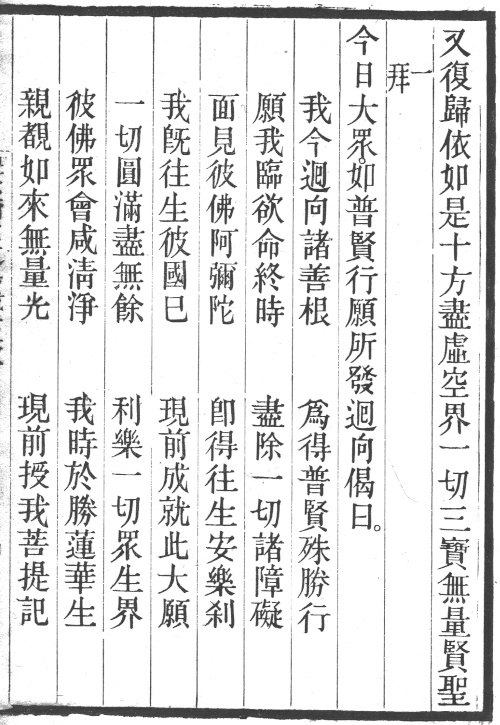 又復歸依如是十方盡虛空界一切三寶無量賢聖
一拜
今日大眾。如普賢行願所發迴向偈曰。
我今迴向諸善根　爲得普賢殊勝行
願我臨欲命終時　盡除一切諸障礙
面見彼佛阿彌陀　卽得往生安樂刹
我旣往生彼國已　現前成就此大願
一切圓滿盡無餘　利樂一切眾生界
彼佛眾會咸淸淨　我時於勝蓮華生
親覩如來無量光　現前授我菩提記